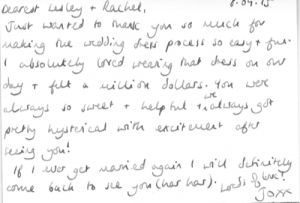 Dearest Lesley + Rachel,
8.09.15
Just wanted to thank you so much for
making the wedding dress process so easy + fun.
I absolutely loved wearing that dress on our
day + felt a million dollars. You were
always so sweet + helpful + we always got
pretty hysterical with excitement after
seeing you!
If I ever get married again I will definitely
come back to see you (har har). Loads of love!
Joxx